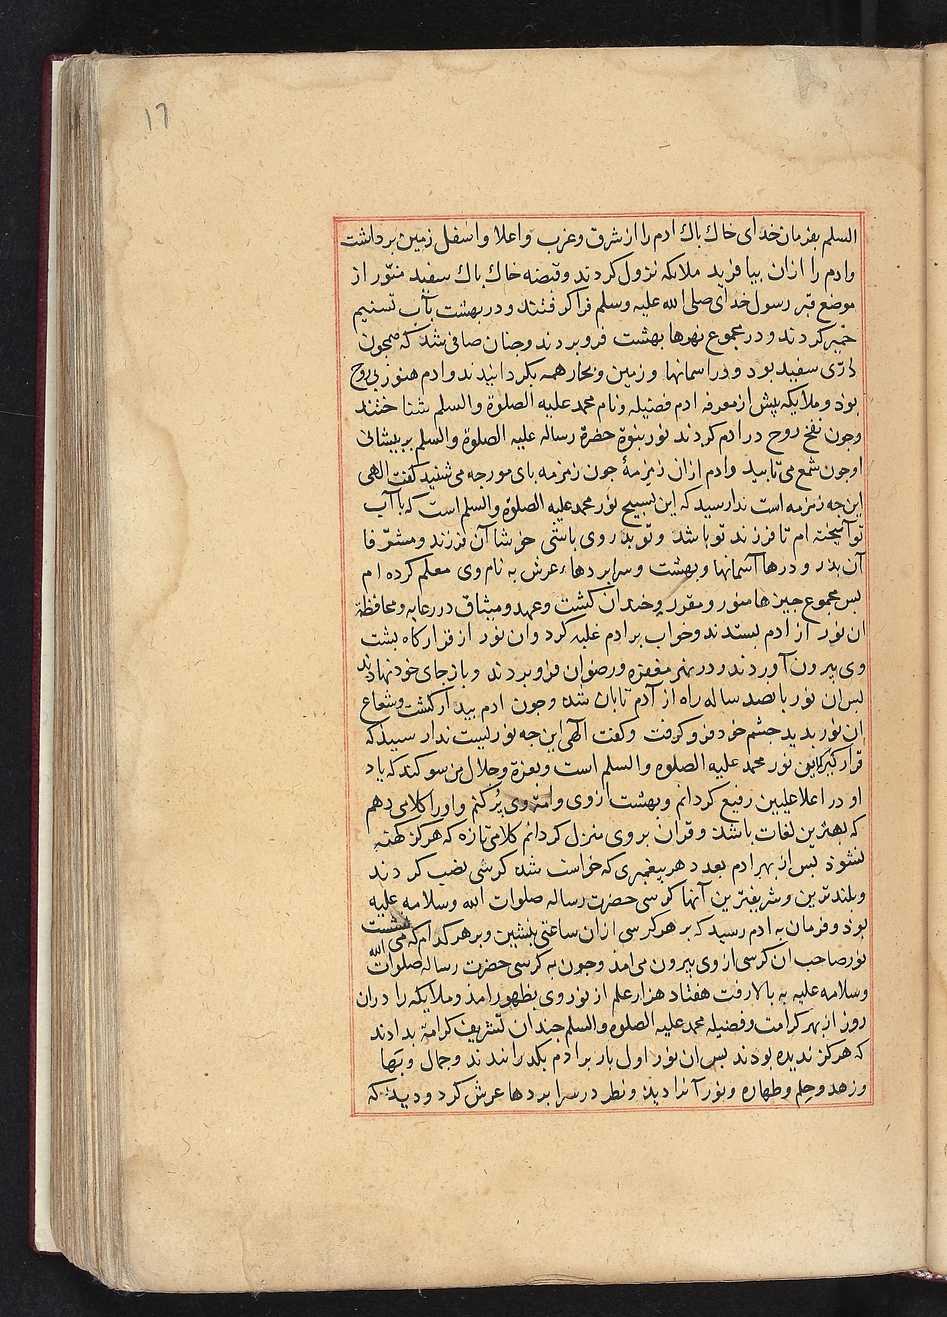 ١٦
السلم بفرمان خدای خاك باك ادم را از شرق و غرب و اعلا و اسفل زمین برداشت
و ادم را ازان بیافرید ملایکه نزول کردند و قبضه خاك باك سفید منوّر از
موضع قبر رسول خدای صلی الله علیه وسلم فرا کرفتند و در بهشت بآب تسنیم
خمیر کردند و در مجموع نهرها بهشت فرو بردند و جنان صافی شد که همجون
درّی سفید بود و در اسمانها و زمین و بحار همه بکردانیدند و ادم هنوز بی روح
بود و ملایکه بیش از معرفه ادم فضیله و نام محمد علیه الصلوة والسلم شناختند
و جون نفخ روح در ادم کردند نور نبوّة حضرة رساله علیه الصلوة والسلم بر بیشانی
او جون شمع می تابید و ادم ازان زمزمهٔ جون زمزمه بای مورجه می شنید کفت الهی
این جه زمزمه است ندا رسید که این تسبیح نور محمد علیه الصلوة والسلم است که با آب
تو آمیخته ام تا فرزند تو باشد و تو بدر وی باشی خوشا آن فرزند و مشرّفا
آن بدر و درها آسمانها و بهشت و سرابردهاء عرش به نام وی معلم کرده ام
بس مجموع جیزها منور و مقرر و خندان کشت و عهد و میثاق در رعایه و محافظة
ان نور از ادم بستدند و خواب بر ادم غلبه کرد و ان نور از قرارکاه بشت
وی بیرون آوردند و در نهر مغفره و رضوان فرو بردند و باز جای خود نهادند
بس ان نور بانصد ساله راه از آدم تابان شده و جون ادم بیدار کشت و شعاع
ان نور بدید جشم خود فرو کرفت و کفت الهی این جه نوریست ندا رسید که
قرار کیر کاین نور محمد علیه الصلوه والسلم است و بعزة و جلال من سوکند که یاد
او در اعلا علیین رفیع کردانم و بهشت از وی و امّة وی بُر کنم و او را کلامی دهم
که بهترین لغات باشد و قران بر وی منزل کردانم کلامی تازه که هرکز کهنه
نشود بس از بهر ادم بعدد هر بیغمبری که خواست شد کرسی نصب کردند
و بلندترین و شریفترین آنها کرسی حضرت رساله صلوات الله وسلامه علیه
بود و فرمان به ادم رسید که بر هر کرسی ازان ساعتی بنشین و بر هر کدام که می نشست
نور صاحب ان کرسی از وی بیرون می امد و جون به کرسی حضرت رساله صلوات الله
وسلامه علیه به بالا رفت هفتاد هزار علم از نور وی بظهور امد و ملایکه را دران
روز از بهر کرامت و فضیله محمد علیه الصلوه والسلم جندان تشریف کرامة بدادند
که هرکز ندیده بودند بس ان نور اول بار بر ادم بکذرانیدند و جمال و بها
و زهد و حلم و طهاره و نور آنرا دید و نظر در سرابردها عرش کرد و دید که